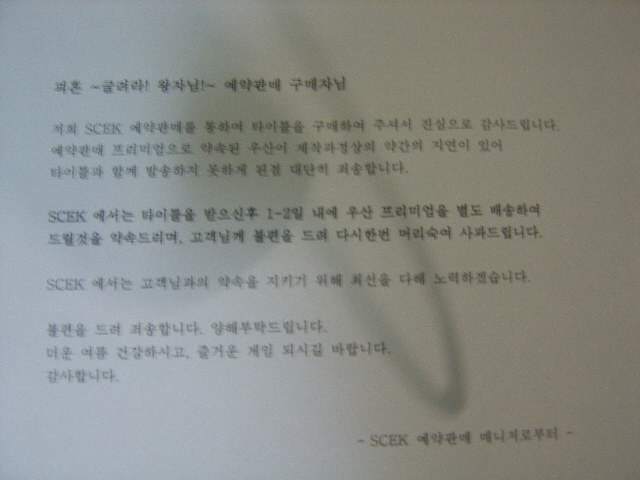 괴혼 ~굴려라! 왕자님!~ 예약판매 구매자님
저희 SCEK 예약판매를 통하여 타이틀을 구매하여 주셔서 진심으로 감사드립니다.
예약판매 프리미엄으로 약속된 우산이 제작과정상의 약간의 지연이 있어
타이틀과 함께 발송하지 못하게 된점 대단히 죄송합니다.
SCEK 에서는 타이틀을 받으신후 1-2일 내에 우산 프리미엄을 별도 배송하여
드릴것을 약속드리며, 고객님께 불편을 드려 다시한번 머리숙여 사과드립니다.
SCEK 에서는 고객님과의 약속을 지키기 위해 최선을 다해 노력하겠습니다.
불편을 드려 죄송합니다. 양해부탁드립니다.
더운 여름 건강하시고, 즐거운 게임 되시길 바랍니다.
감사합니다.
- SCEK 예약판매 매니저로부터 -